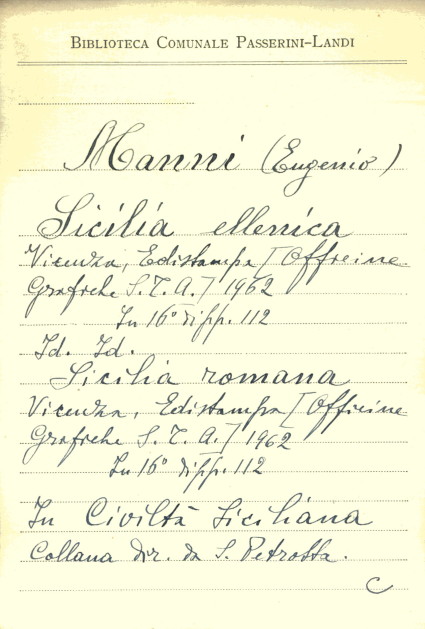 BIBLIOTECA COMUNALE PASSERINI-LANDI
Manni (Eugenio)
Sicilia ellenica
Vicenza, Edistampa [Officine
Grafiche S.T.A.] 1962
In 16° di pp. 112
Id. Id.
Sicilia romana
Vicenza, Edistampa [Officine
Grafiche S.T.A.] 1962
In 16° di pp. 112
In Civiltà Siciliana
Collana dir. da S. Petrotta.
C